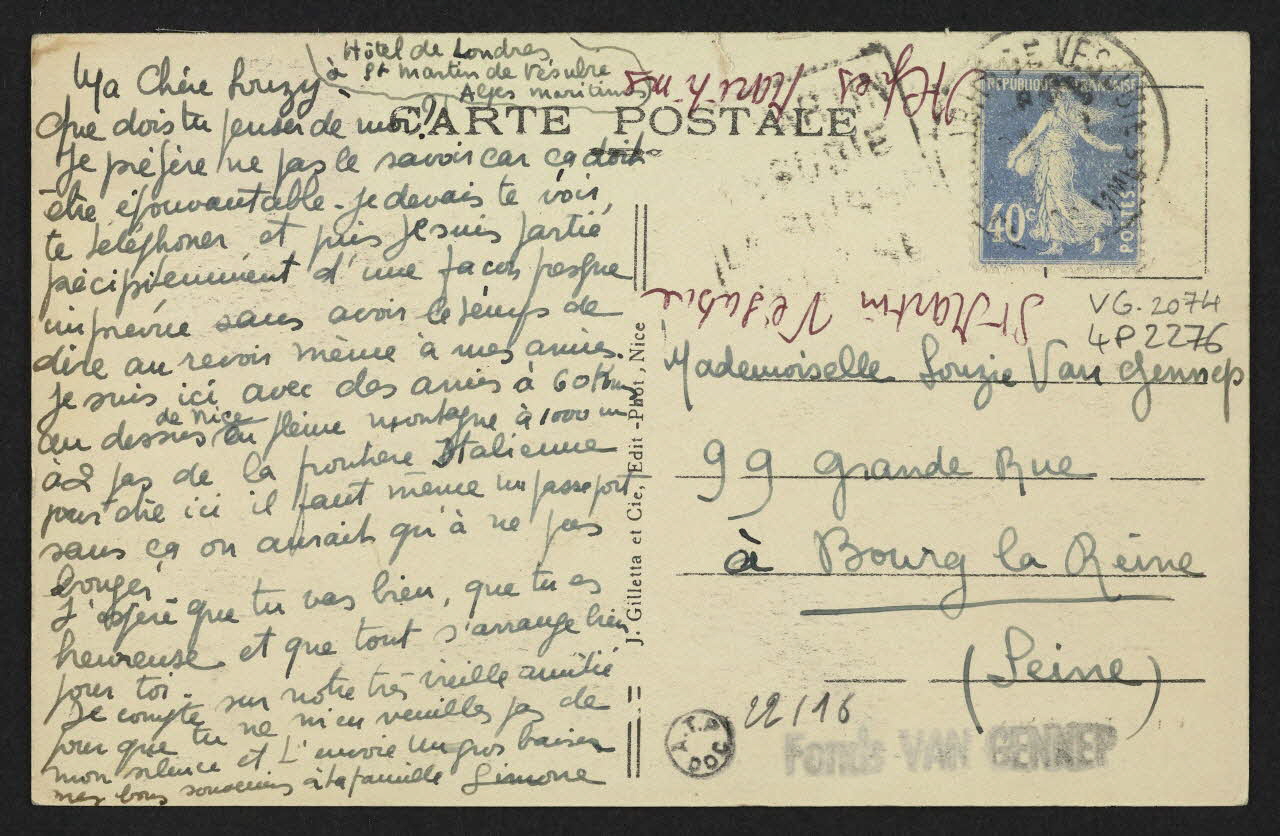 Hôtel de Londres
à St Martin de Vésubie
Alpes maritimes
CARTE POSTALE
Ma Chère Souzy
Que dois tu penser de moi?
Je préfère ne pas le savoir car ça doit
être épouvantable - je devais te voir,
te téléphoner et puis je suis partie
précipitemment d'une façon presque
imprévue sans avoir le temps de
dire au revoir même à mes amies.
Je suis ici avec des amies à 60 Kms
au dessus de Nice en pleine montagne à 1000 m
à 2 pas de la frontière Italienne
pour être ici il faut même un passeport
sans ça on aurait qu'à ne pas
bouger
J'espère que tu vas bien, que tu es
heureuse et que tout s'arrange bien
pour toi.
Je compte sur notre très vieille amitié
pour que tu ne m'en veuilles pas de
mon silence et t'envoie un gros baiser
mes bons souvenirs à ta famille Simone
J. Gilletta et Cie, Edit -Phot, Nice
Alpes Maritimes
St Martin Vésubie
RÉPUBLIQUE FRANÇAISE
40c
POSTES
VG. 2074
4P2276
Mademoiselle Souzie Van Gennep
99 Grande Rue
à Bourg la Reine
(Seine)
22/16
A.T.P
DOC
Fonds VAN GENNEP